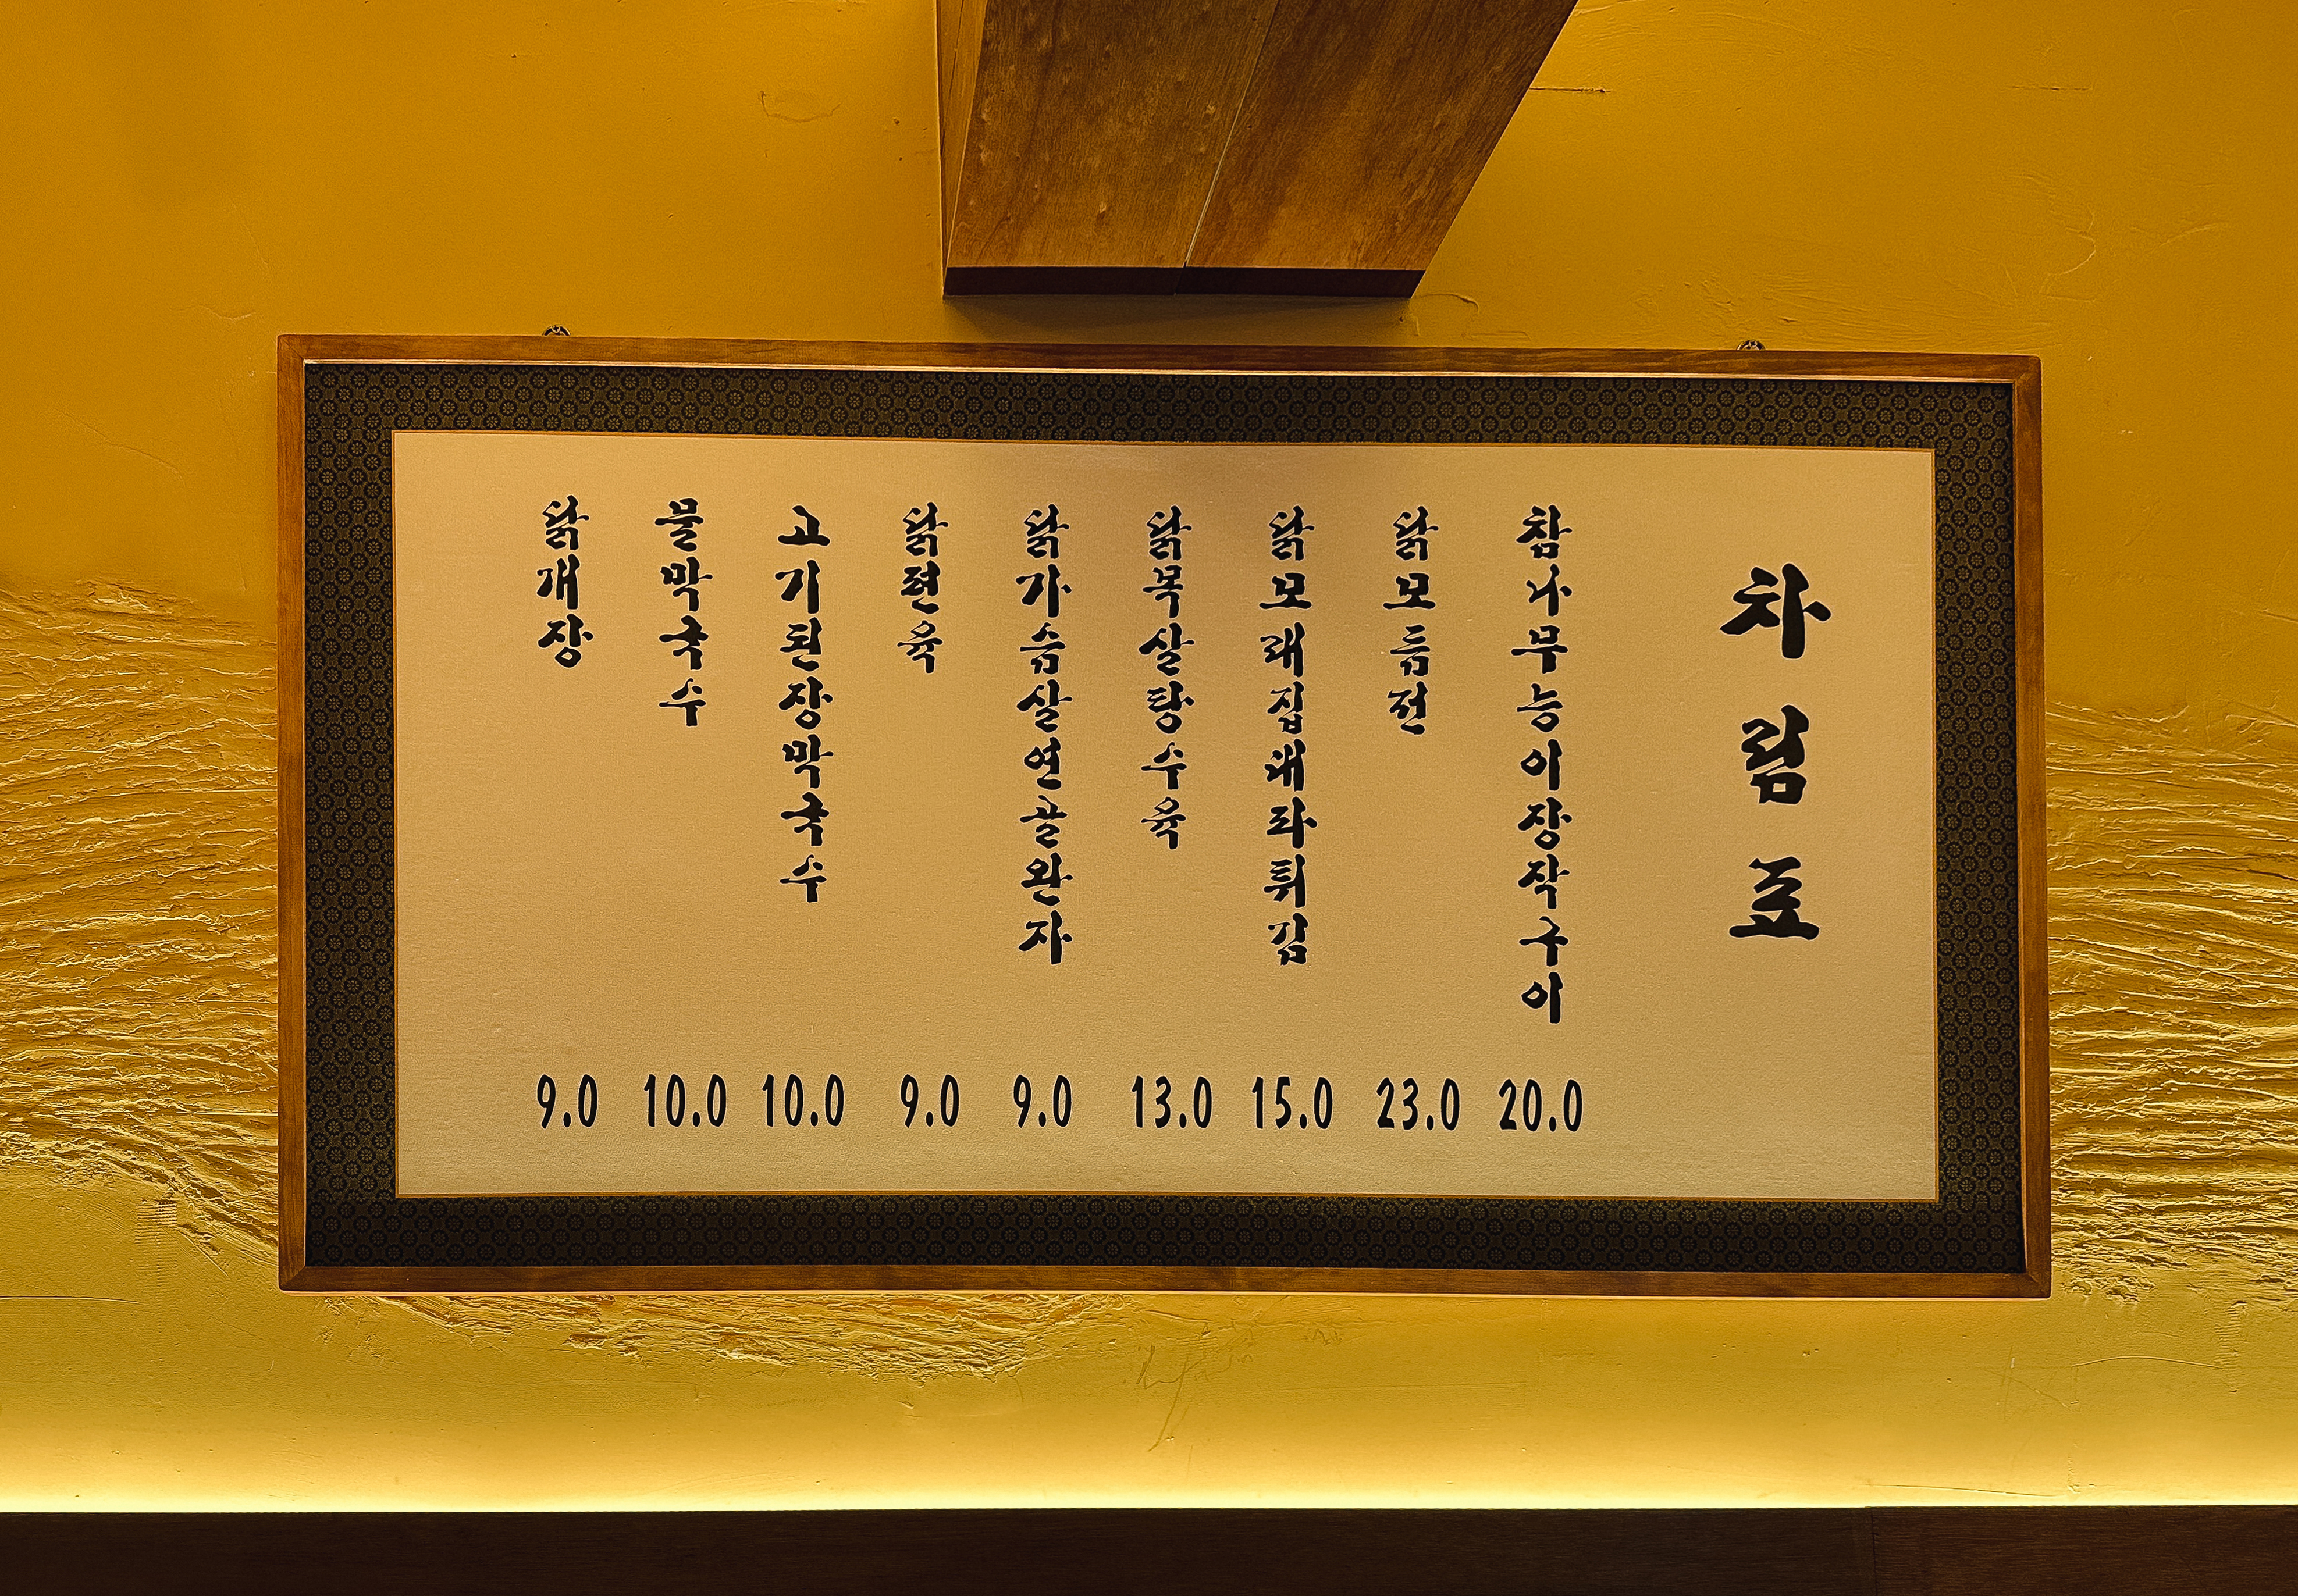 차림표
참나무능이장작구이 20.0
닭모듬전 23.0
닭모래집대파튀김 15.0
닭목살탕수육 13.0
닭가슴살연골완자 9.0
닭편육 9.0
고기된장막국수 10.0
물막국수 10.0
닭개장 9.0